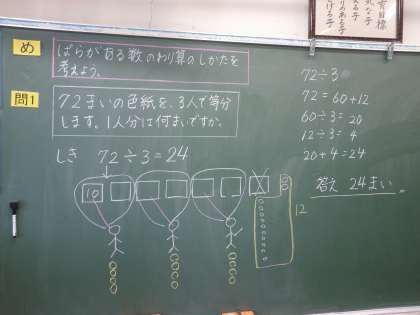 め
ばらがある数のわり算のしかたを
考えよう。
問1
72まいの色紙を、3人で等分
します。1人分は何まいですか。
しき 72÷3=24
10
12
72÷3
72=60+12
60÷3=20
12÷3=4
20+4=24
答え 24まい。
育目標